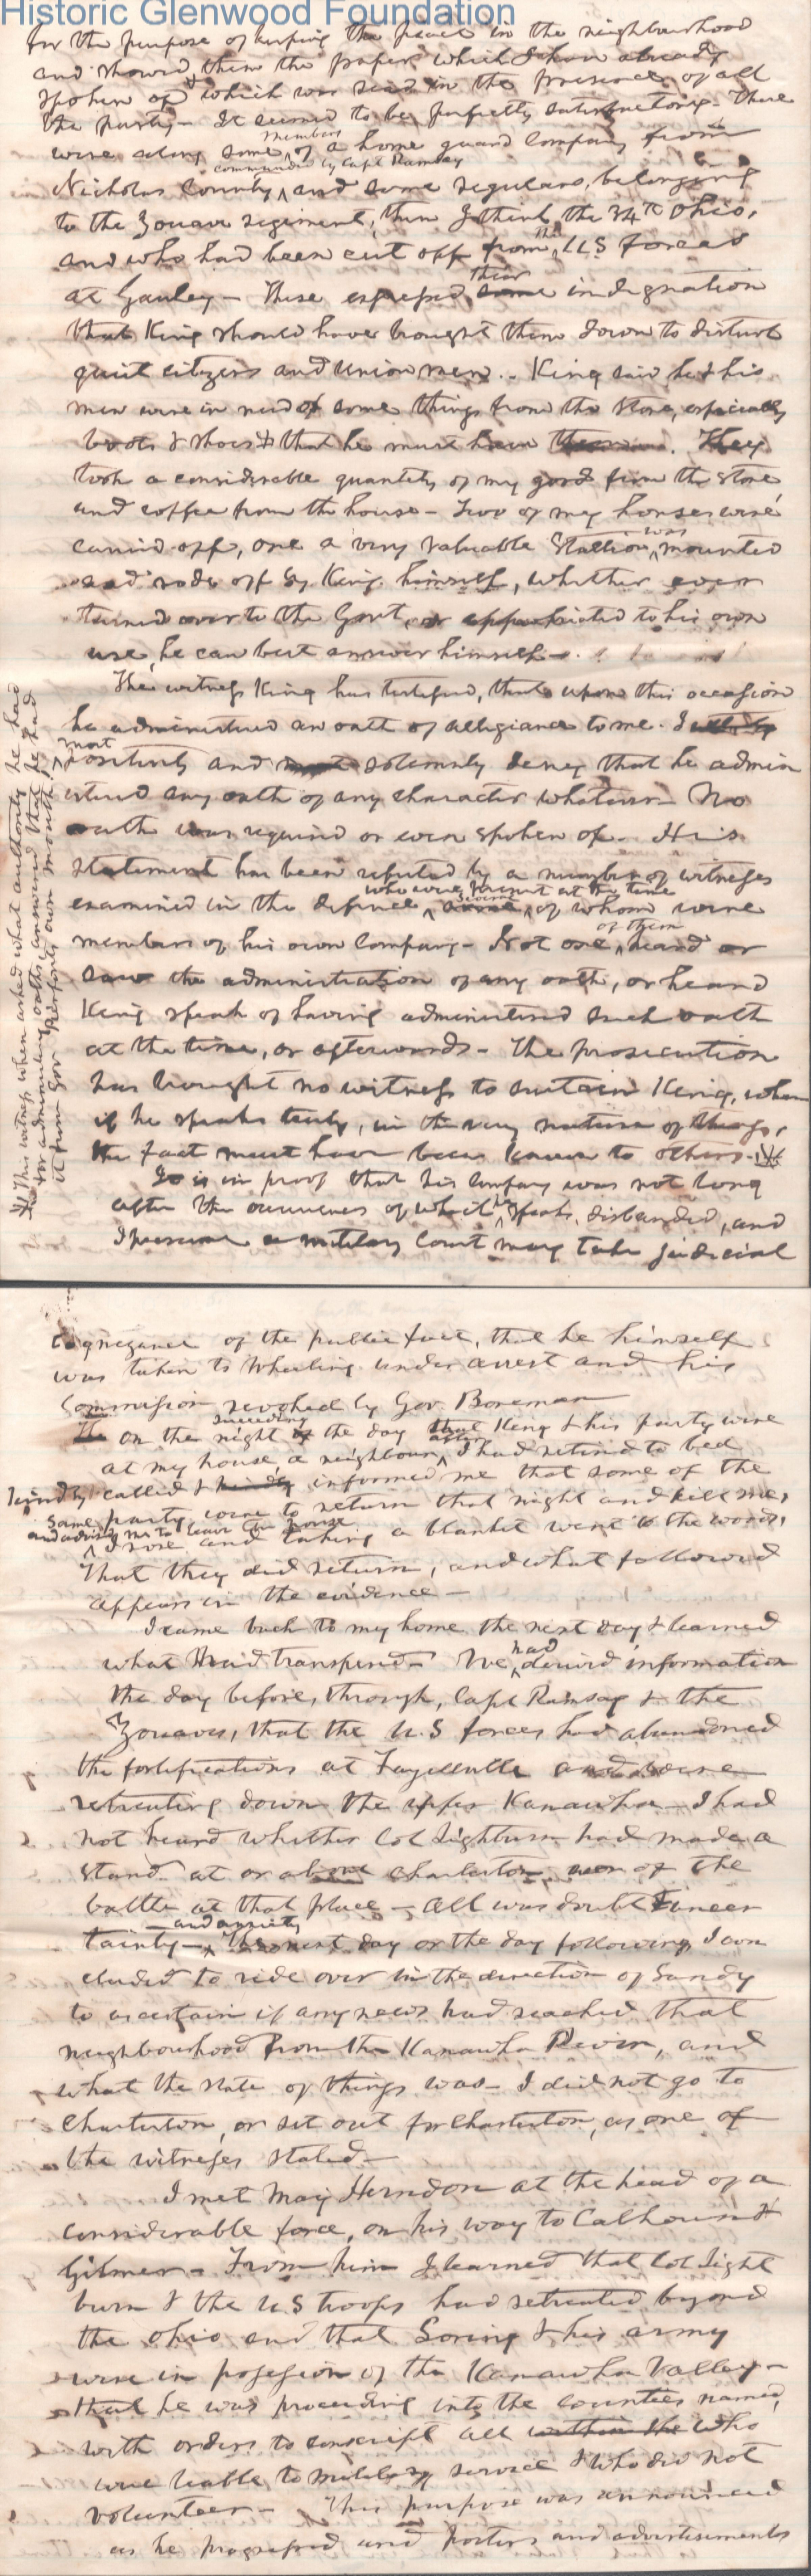 Historic Glenwood Foundation
for the purpose of keeping the peace in the neighbourhood
and showed them the papers which I have already
spoken of which was read in the presence of all
the party - It seemed to be perfectly satisfactory - There
were along some members of a home guard Company from
Nicholas County commanded by Capt Ramsay and some regulars, belonging
to the Zouave regiment, then I think the 34th Ohio,
and who had been cut off from the U S forces
at Gauley - These expressed their some indignation
that King should have brought them down to disturb
quiet citizens and Union men. - King said he & his
men were in need of some things from the store, especially
boots & shoes & that he must have them. They
took a considerable quantity of my goods from the store
and coffee from the house - Two of my horses were
carried off, one a very valuable Stallion, was mounted
and rode off by King himself, whether ever
turned over to the Govt, or appropriated to his own
use, he can best answer himself -
The witness King has testified, that upon this occasion
he administered an oath of allegiance to me. I
most positively and most solemnly deny that he admin
istered any oath of any character whatever - No
oath was required or even spoken of - His
statement has been refuted by a number of witnesses
examined in the defence, who were present at the time some of whom were
members of his own Company - Not one of them heard or
saw the administration of any oath, or heard
King speak of having administered such oath
at the time, or afterwards - The prosecution
has brought no witness to sustain King, when
if he speaks truly, in the very nature of things,
the fact must have been known to others -
It is in proof that his Company was not long
after the occurrences of which he speaks, disbanded, and
I presume a military Court may take judicial
This witness when asked what authority he had
for administering oaths, answered that he had
it from Gov Pierpont's own mouth
cognizance of the public fact, that he himself
was taken to Wheeling under arrest and his
Commission revoked by Gov. Boreman
The on the night succeeding the day that King & his party were
at my house, a neighbour, after I had retired to bed
kindly called & kindly informed me that some of the
same party were to return that night and kill me,
and advising me to leave the house
I rose and taking a blanket went to the woods,
That they did return, and what followed
appears in the evidence -
I came back to my home the next day & learned
what had transpired - We had derived information
the day before, through, Capt Ramsay & the
Zouaves, that the U.S forces had abandoned
the fortifications at Fayetteville and were
retreating down the upper Kanawha - I had
not heard whether Col Lightburn had made a
stand at or above Charleston, nor of the
battle at that place - All was doubt & uncer
tainty - and anxiety The next day or the day following, I con
cluded to ride over in the direction of Sandy
to ascertain if any news had reached that
neighbourhood from the Kanawha River, and
what the state of things was - I did not go to
Charleston, or set out for Charleston, as one of
the witnesses stated -
I met Maj Herndon at the head of a
considerable force, on his way to Calhoun &
Gilmer - From him I learned that Col Light
burn & the U S troops had retreated beyond
the Ohio and that Loring & his army
were in possession of the Kanawha Valley -
that he was proceeding into the counties named,
with orders to conscript all within the who
were liable to military service & who did not
volunteer - This purpose was announced
as he progressed and posters and advertisements